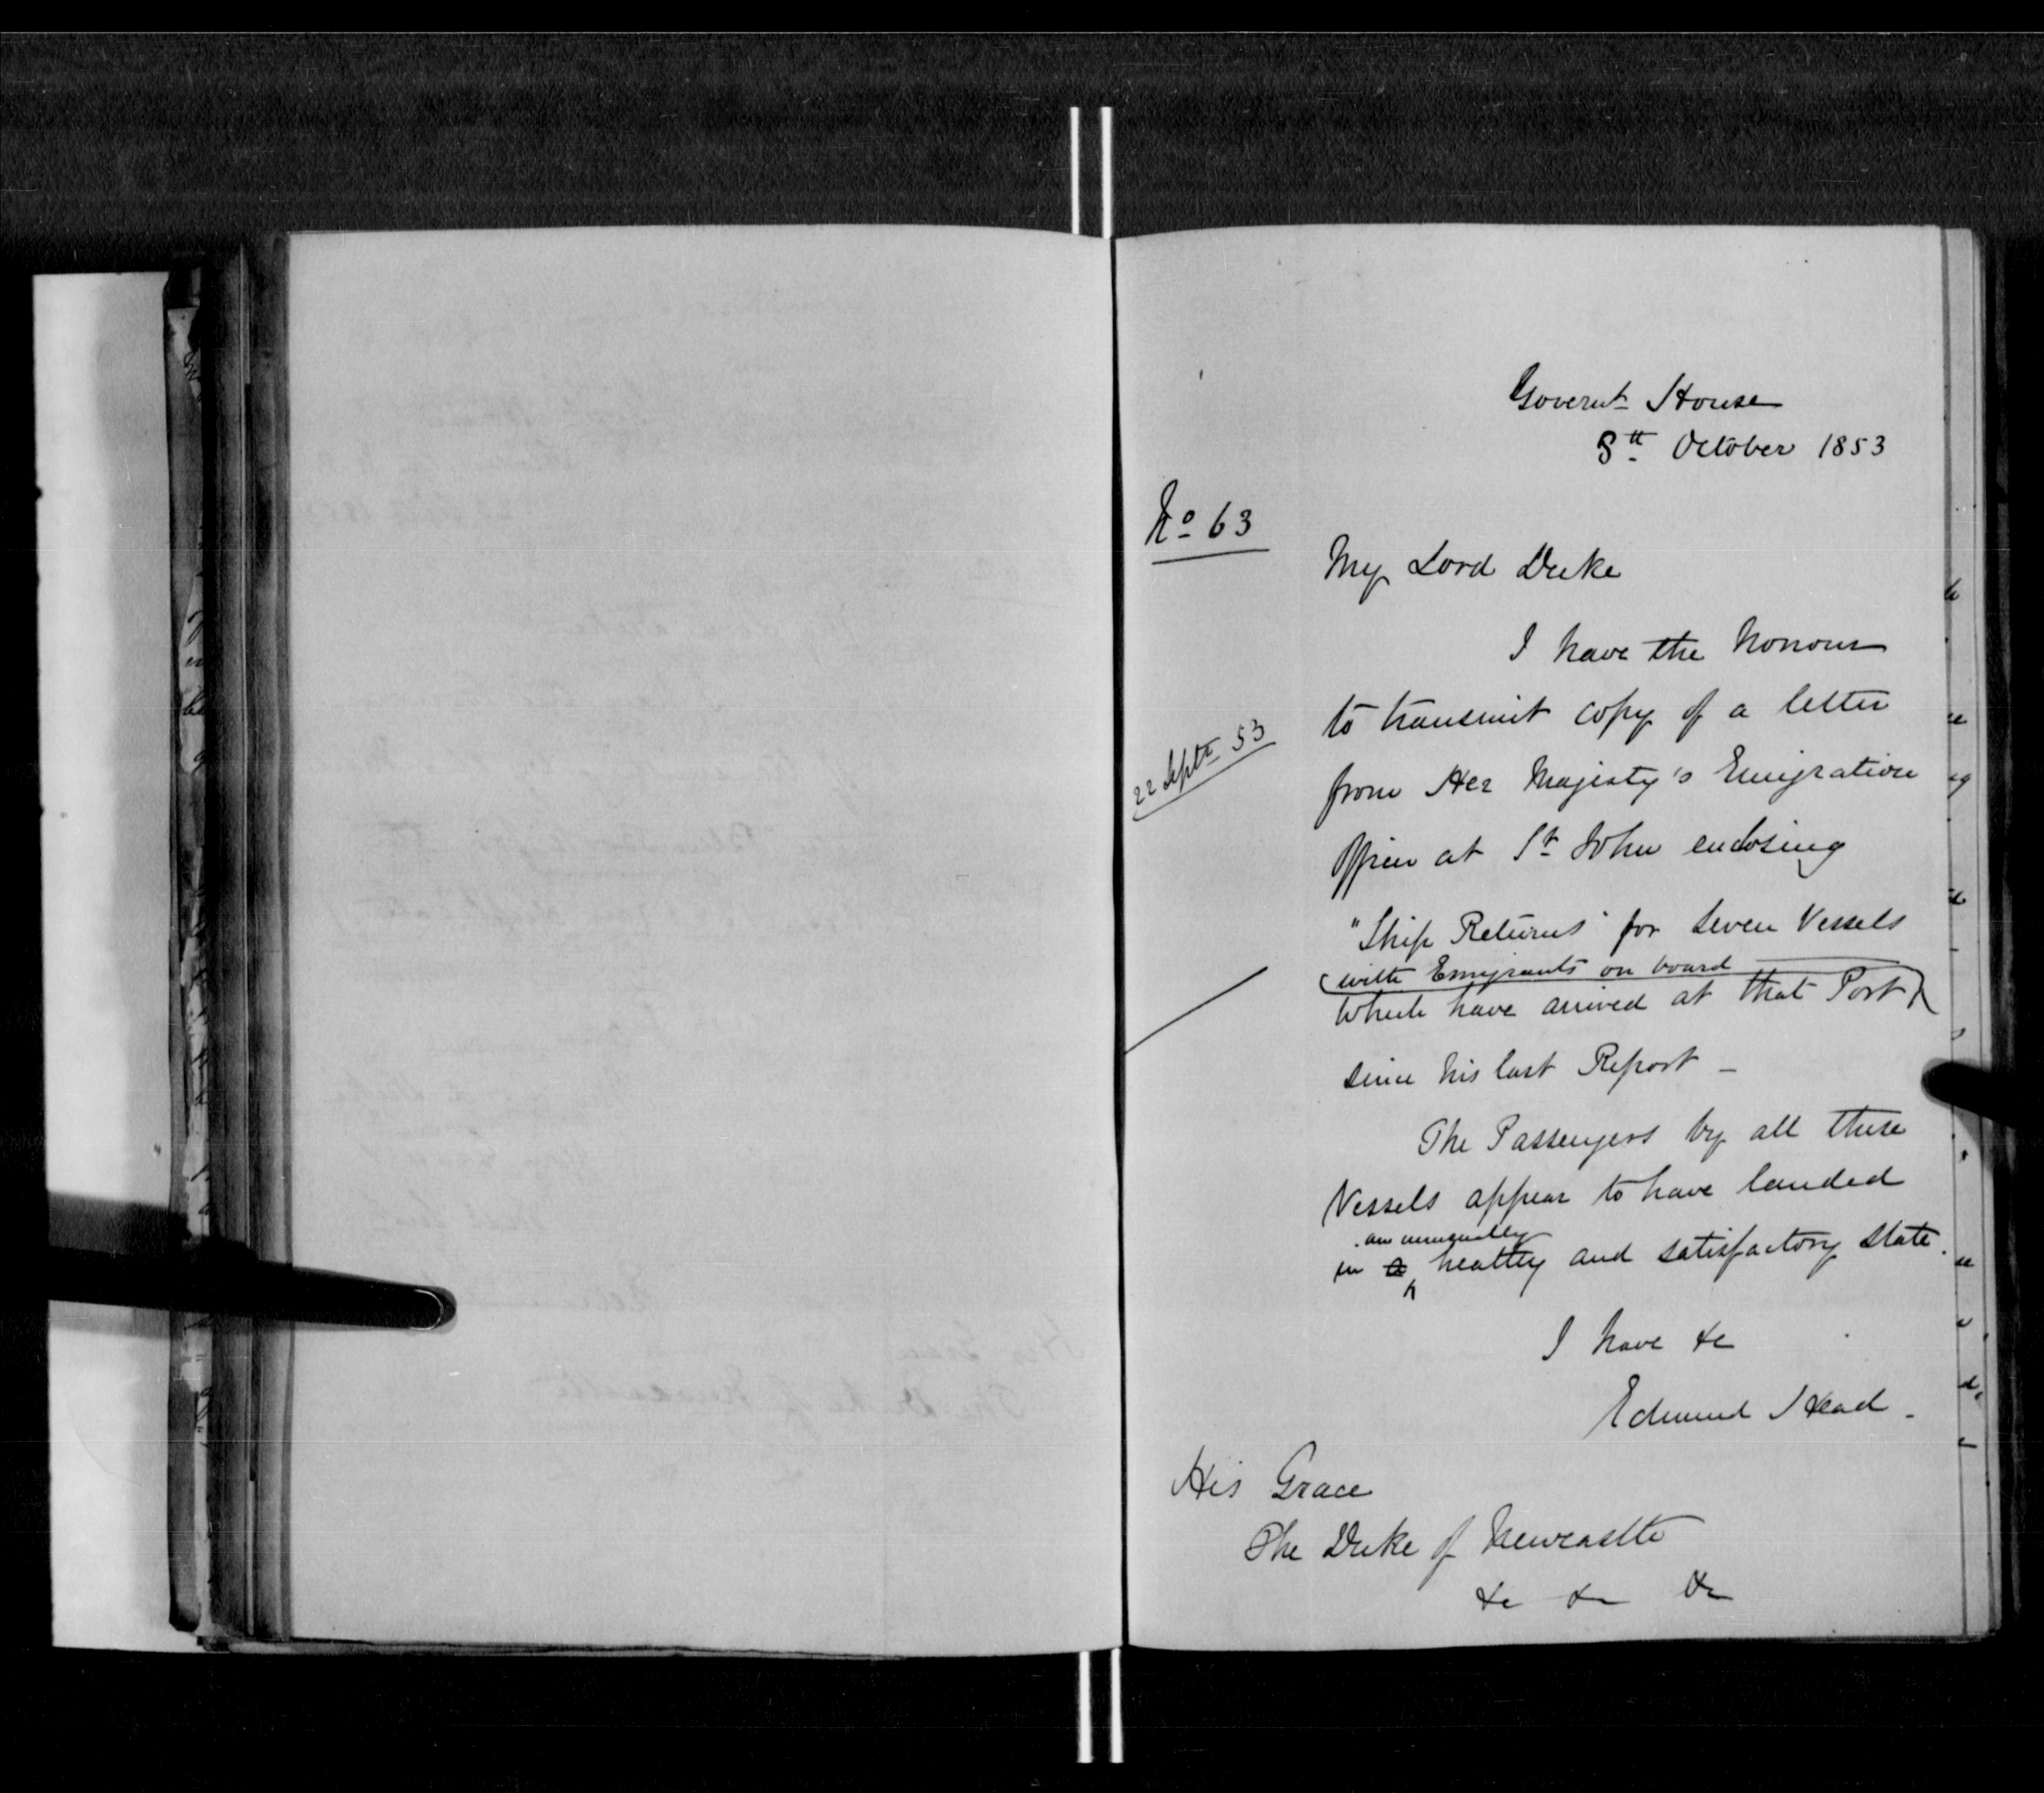 Governt House
8th October 1853
No 63
My Lord Duke
I have the honour
to transmit copy of a letter
22 Septr 53
from Her Majesty's Emigration
Officer at St John enclosing
"Ship Returns" for seven Vessels
with Emigrants on board
which have arrived at that Port
since his last Report -
The Passengers by all these
Vessels appear to have landed
an unusually
in a healthy and satisfactory state.
I have &c
Edmund Head -
His Grace
The Duke of Newcastle
&c &c &c